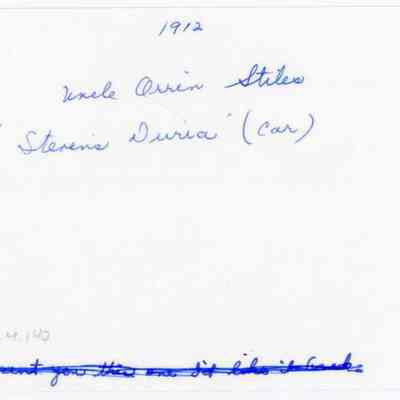 1912
Uncle Orrin Stiles
' Stevens Duria' (car)
.4.142
sent you this one I'd like it back.